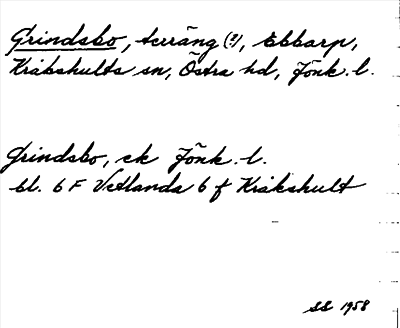 Grindsbo, terräng (?), Ebbarp,
Kråkshults sn, Östra hd, Jönk. l.
Grindsbo, ek Jönk. l.
bl. 6 F Vetlanda 6 f Kråkshult
SS 1958